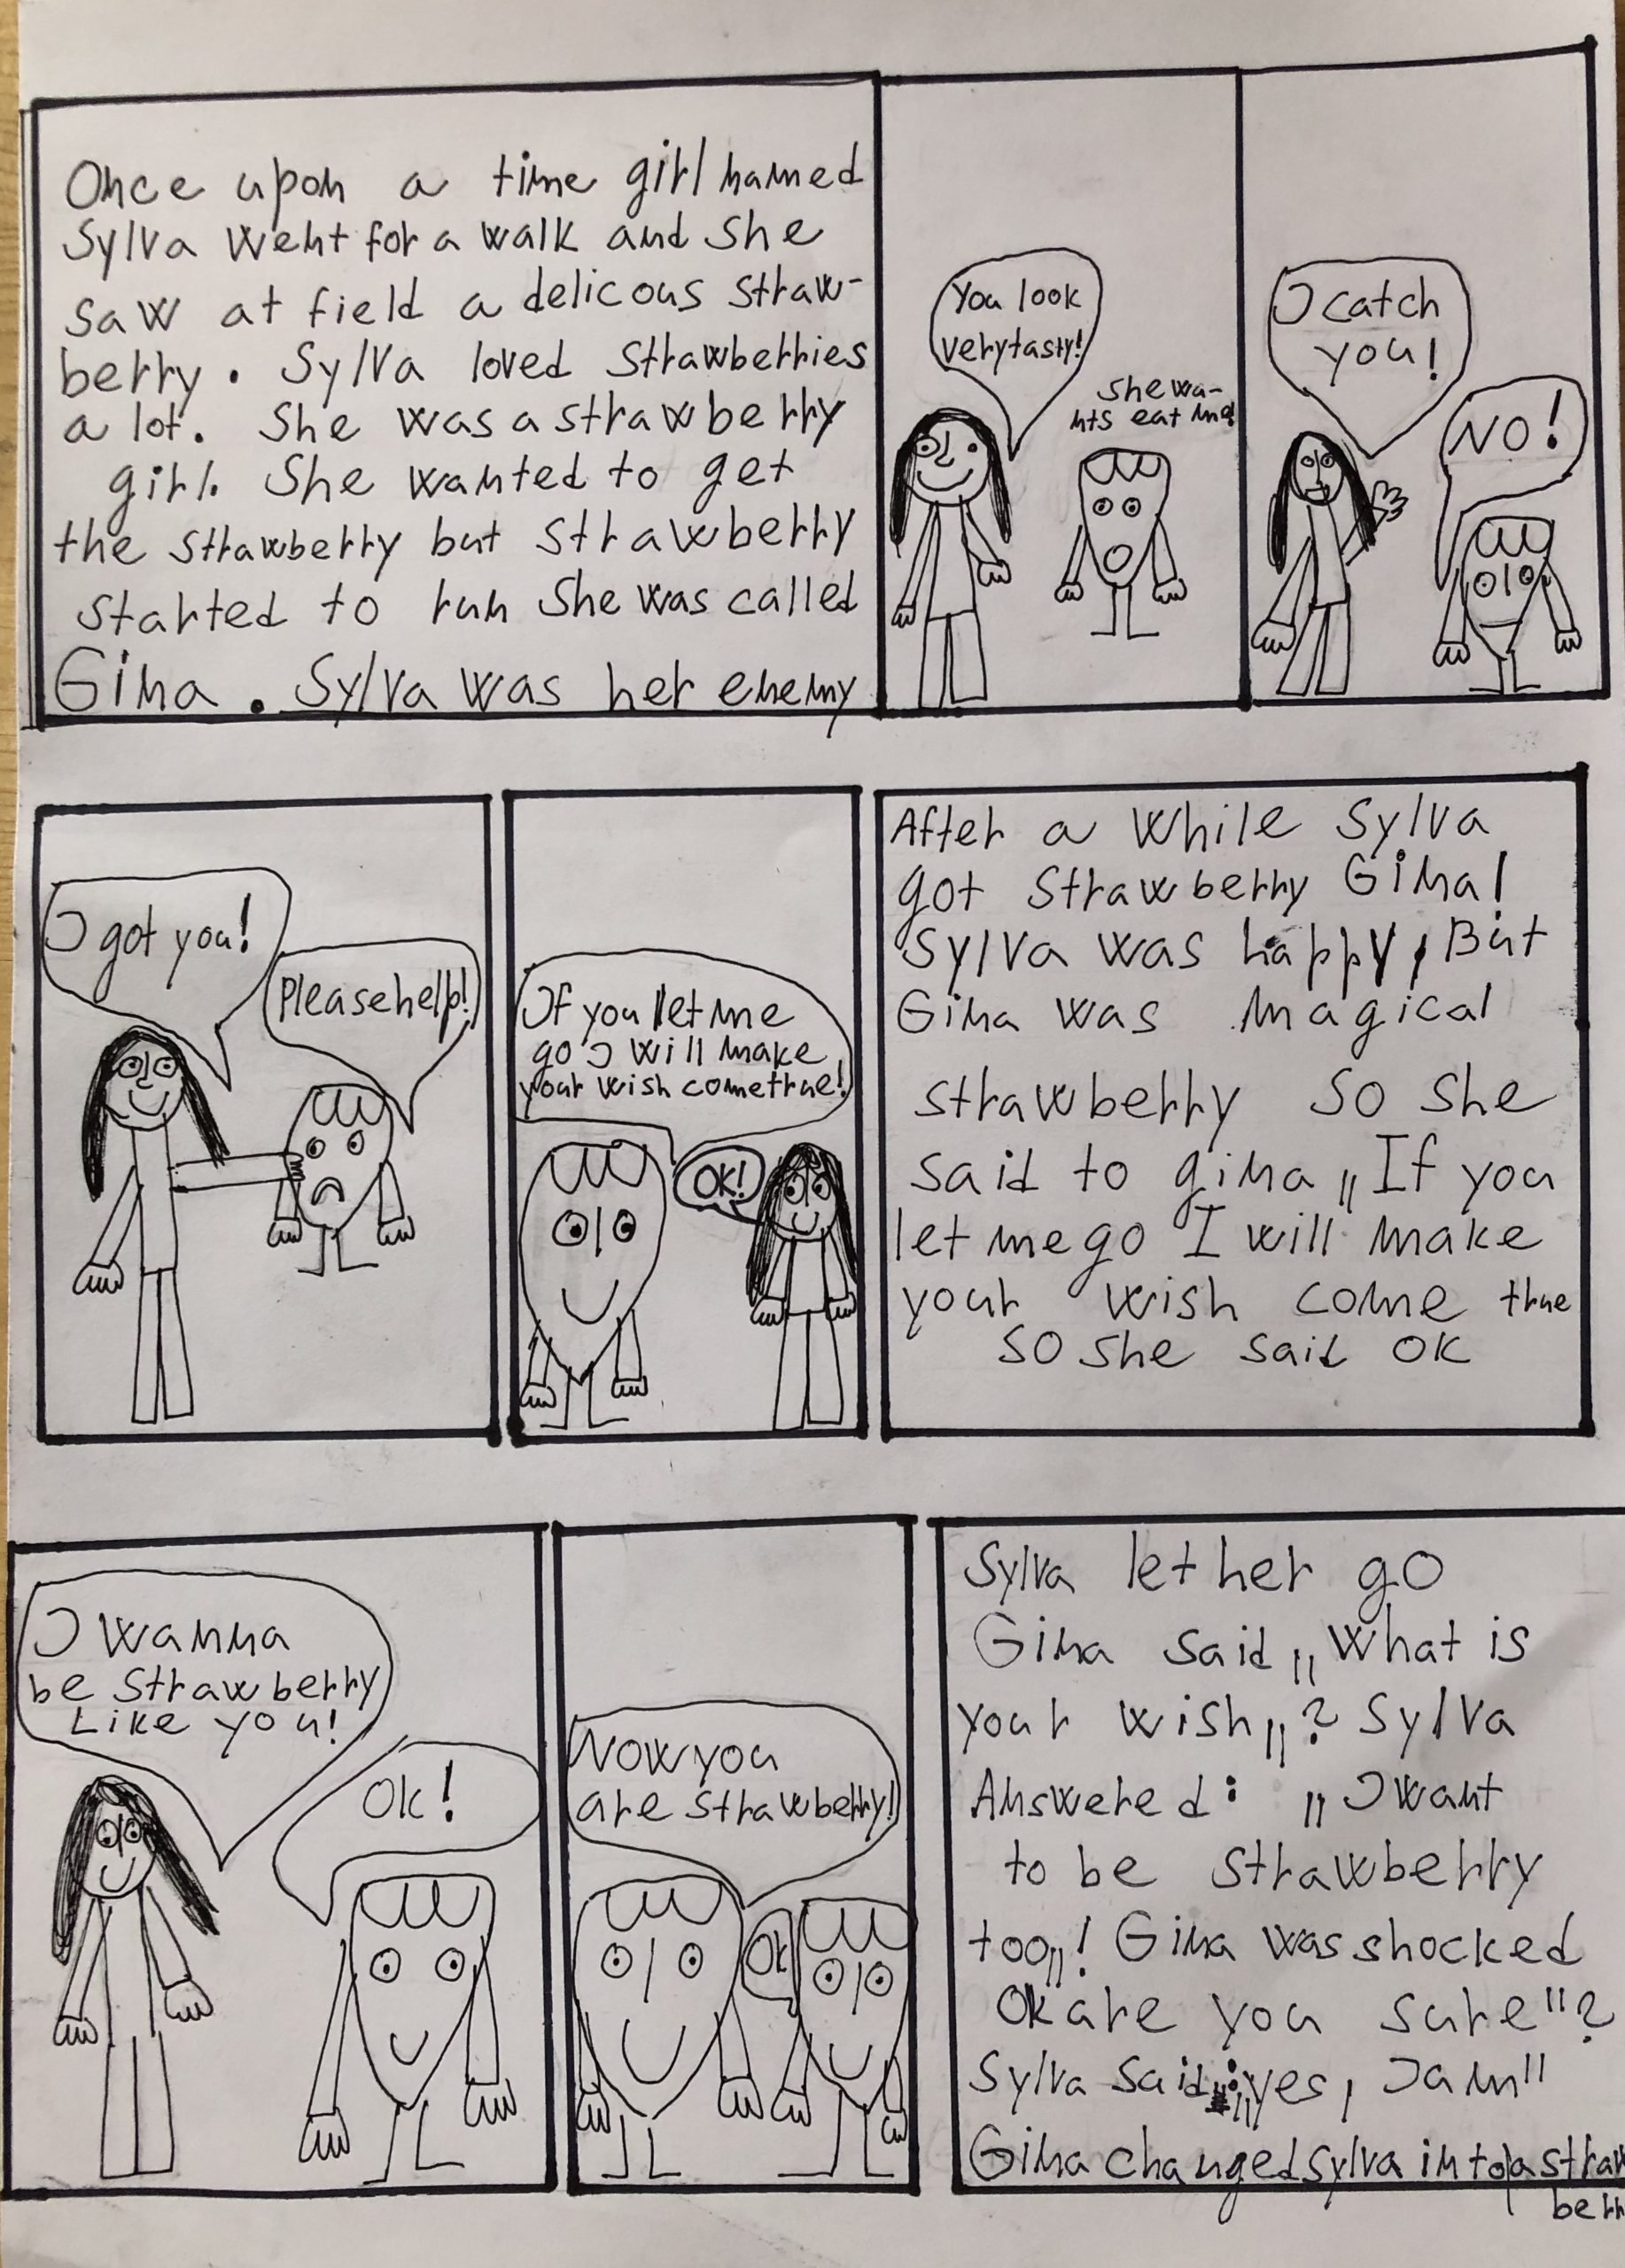 Once upon a time girl named
Sylva went for a walk and she
saw at field a delicous straw-
berry. Sylva loved strawberries
a lot. She was a strawberry
girl. She wanted to get
the strawberry but strawberry
started to run she was called
Gina. Sylva was her enemy
You look
very tasty!
she wa-
nts eat me!
I catch
you!
NO!
I got you!
Please help!
If you let me
go I will make
your wish come true!
OK!
After a while Sylva
got strawberry Gina!
Sylva was happy, But
Gina was magical
strawberry so she
said to gina „If you
let me go I will make
your wish come true
so she said ok
I wanna
be strawberry
Like you!
Ok!
Now you
are strawberry!
Ok
Sylva let her go
Gina said „What is
your wish„? Sylva
Answered: „I want
to be strawberry
too„! Gina was shocked
Ok are you sure"?
Sylva said: „yes, I am"
Gina changed Sylva into a straw
berr